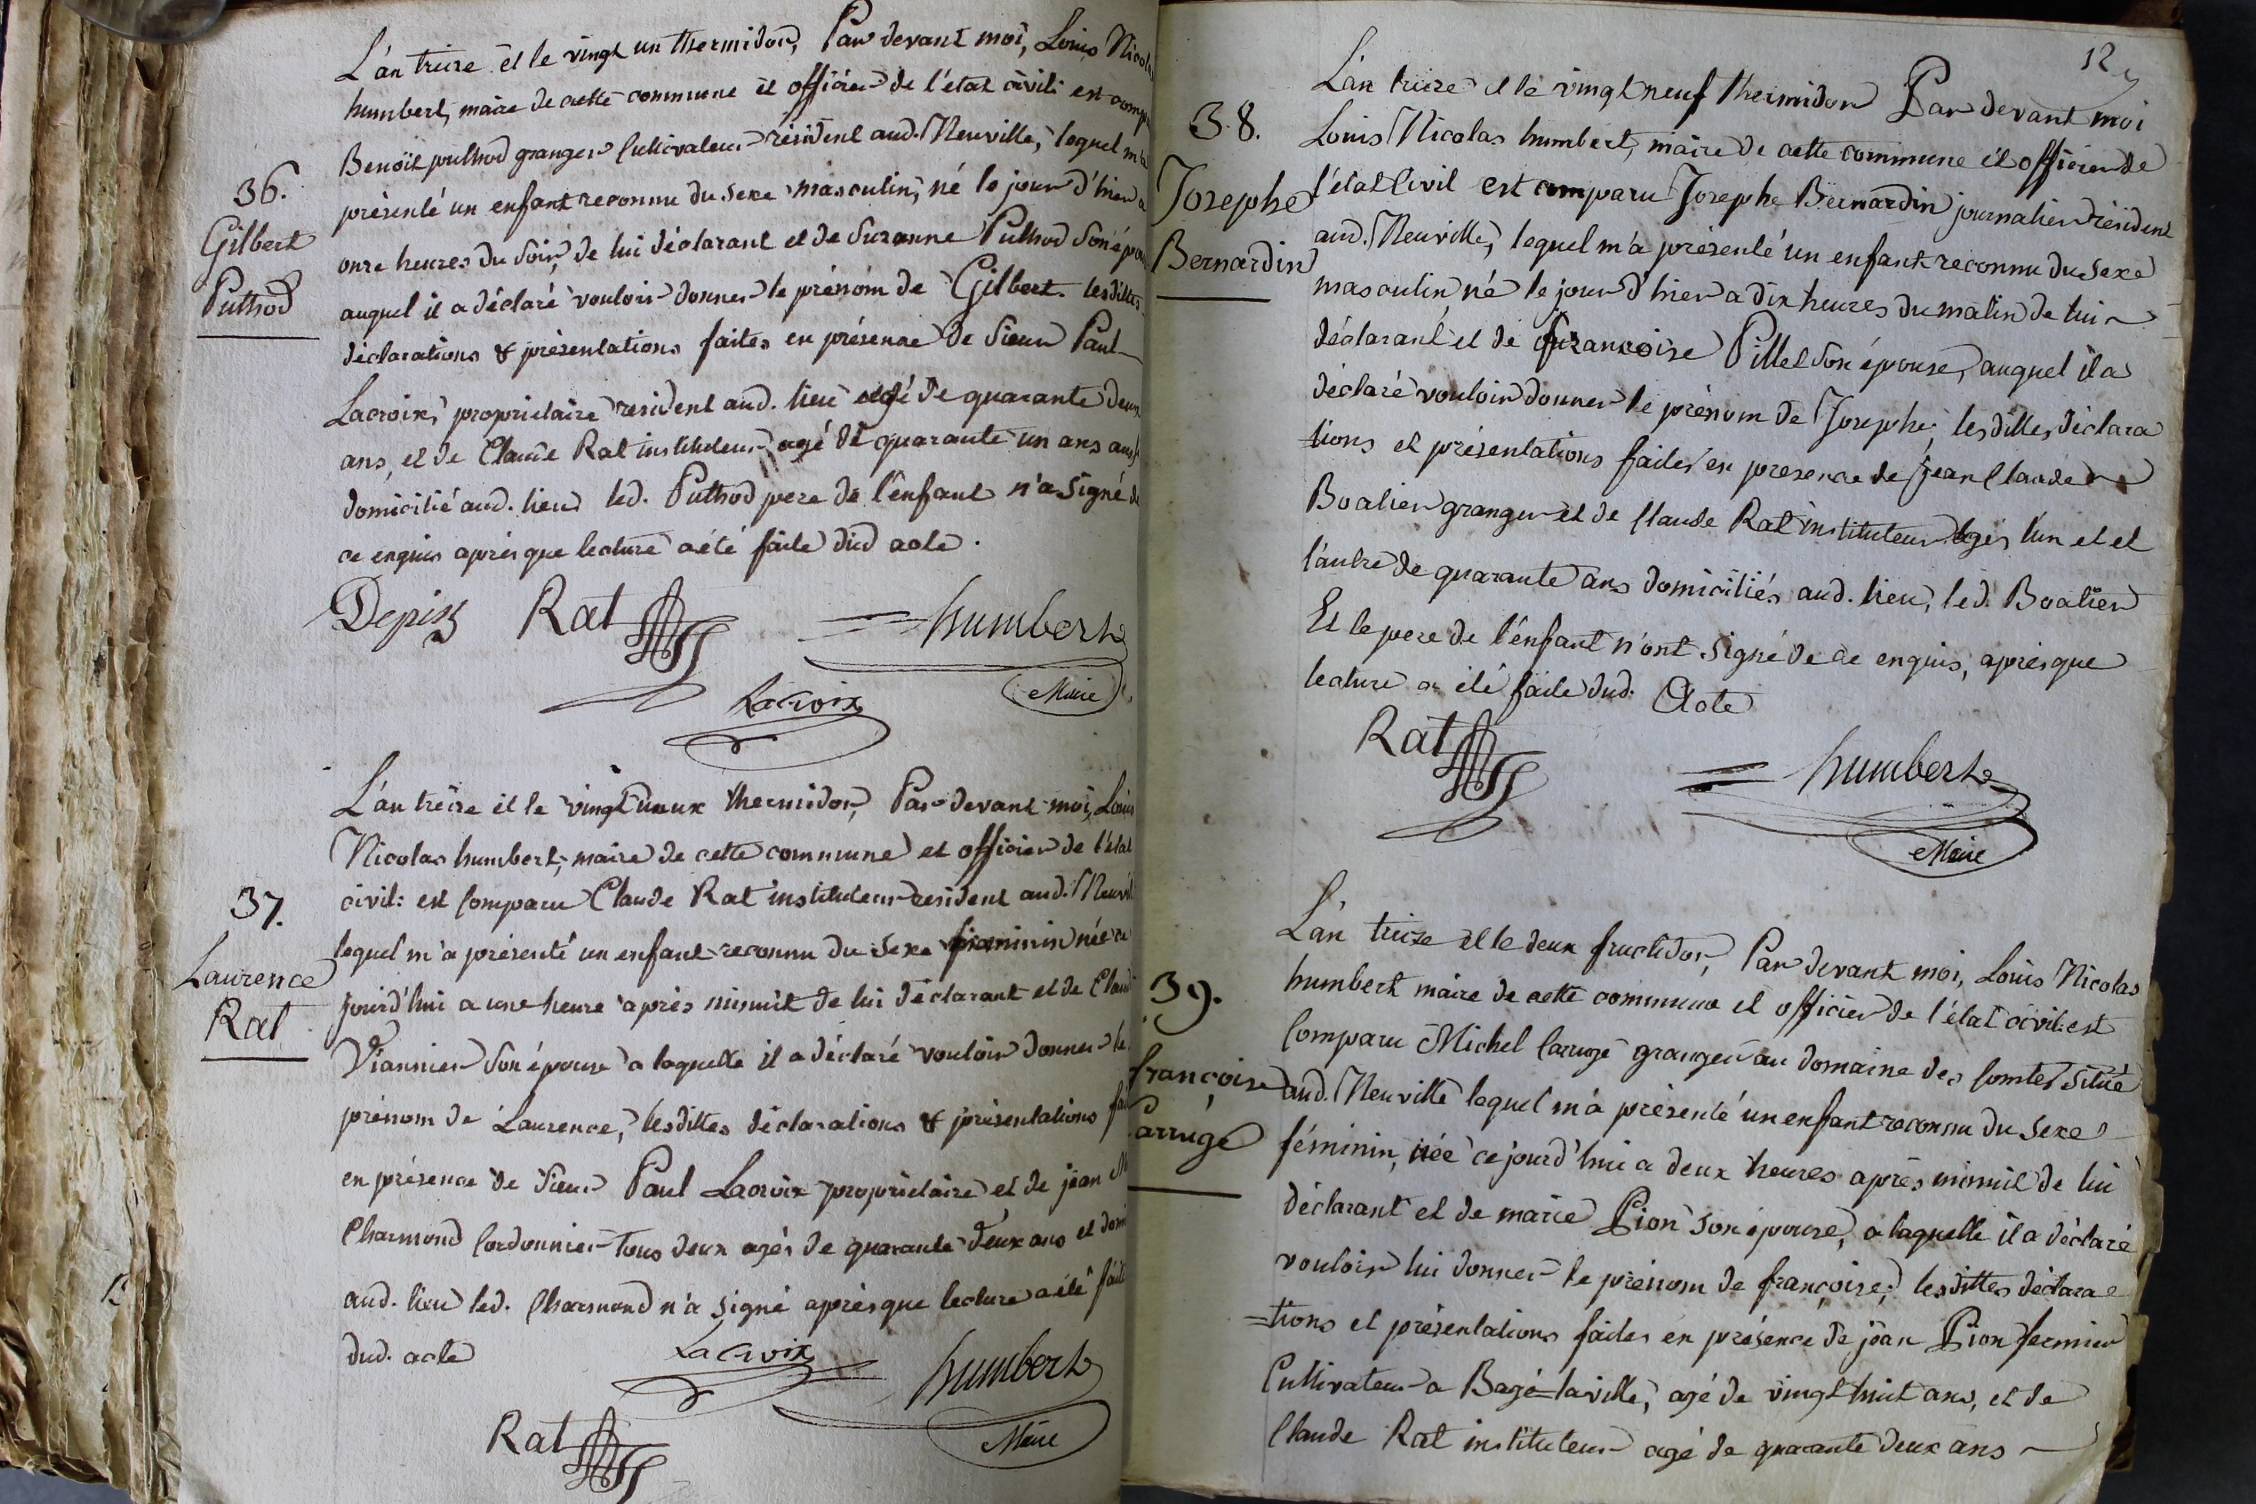 L'an treize et le vingt un thermidor, Par devant moi, Louis Nicolas
humbert, maire de cette commune et officier de l'état civil: est comp
36.
Gilbert
Puthod
Benoit puthod granger Cultivateur résident aud. Neuville, lequel m'a
présenté un enfant reconnu du sexe masculin, né le jour d'hier a
onze heures du soir, de lui déclarant et de Suzanne Puthod son épou
auquel il a déclaré vouloir donner le prénom de Gilbert. lesdittes
déclarations & présentations faites en présence de Sieur Paul
Lacroix, propriétaire résident aud. lieu agé de quarante deux
ans, et de Claude Rat instituteur agé de quarante un ans aussi
domicilié aud. lieu led. Puthod pere de l'enfant n'a signé de
ce enquis après que lecture a été faite dud acte.
Rat humbert
Lacroix Maire
L'an treize et le vingt deux thermidor, Par devant moi, Louis
Nicolas humbert, maire de cette commune et officier de l'état
37.
Laurence
Rat
civil: est Comparu Claude Rat instituteur resident aud. Neuvil
lequel m'a présenté un enfant reconnu du sexe féminin née ce
jourd'hui a une heure après minuit de lui déclarant et de Claud
Viannier son épouse a laquelle il a déclaré vouloir donner le
prénom de Laurence, lesdittes déclarations & présentations fai
en présence de Sieur Paul Lacroix propriétaire et de jean M
Charmond Cordonnier tous deux agés de quarante deux ans et domi
aud. lieu led. Charmond n'a signé après que lecture a été faite
dud. acte
Lacroix humbert
Rat Maire
12
L'an treize et le vingt neuf thermidor Par devant moi
38.
Josephe
Bernardin
Louis Nicolas humbert, maire de cette commune et officier de
l'état Civil est comparu Josephe Bernardin journalier résident
aud. Neuville, lequel m'a présenté un enfant reconnu du sexe
masculin né le jour d'hier a dix heures du matin de lui
déclarant et de francoise Pillet son épouse, auquel il a
déclaré vouloir donner le prénom de Josephe, lesdittes déclara
tions et présentations faites en presence de jean Claude
Boalier granger et de Claude Rat instituteur agés l'un et et
l'autre de quarante ans domiciliés aud. lieu, led. Boalier
Et le pere de l'enfant n'ont signé de ce enquis, après que
lecture a été faite dud. Acte
Rat humbert
Maire
L'an treize et le deux fructidor, Par devant moi, Louis Nicolas
39.
françoise
Carrugé
humbert maire de cette commune et officier de l'état civil: est
Comparu Michel Carrugé granger au domaine des Comtes situé
aud. Neuville lequel m'a présenté un enfant reconnu du sexe
féminin, née ce jourd'hui a deux heures après minuit de lui
déclarant et de marie Pion son épouse, a laquelle il a déclaré
vouloir lui donner le prénom de françoise, lesdittes déclara=
=tions et présentations faites en présence de jean Pion fermier
Cultivateur a Bagé-la ville, agé de vingt huit ans, et de
Claude Rat instituteur agé de quarante deux ans